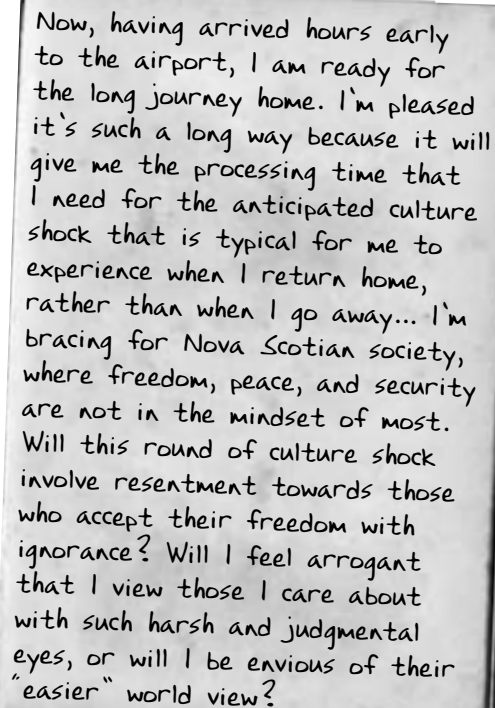 Now, having arrived hours early
to the airport, I am ready for
the long journey home. I'm pleased
it's such a long way because it will
give me the processing time that
I need for the anticipated culture
shock that is typical for me to
experience when I return home,
rather than when I go away... I'm
bracing for Nova Scotian society,
where freedom, peace, and security
are not in the mindset of most.
Will this round of culture shock
involve resentment towards those
who accept their freedom with
ignorance? Will I feel arrogant
that I view those I care about
with such harsh and judgmental
eyes, or will I be envious of their
"easier" world view?